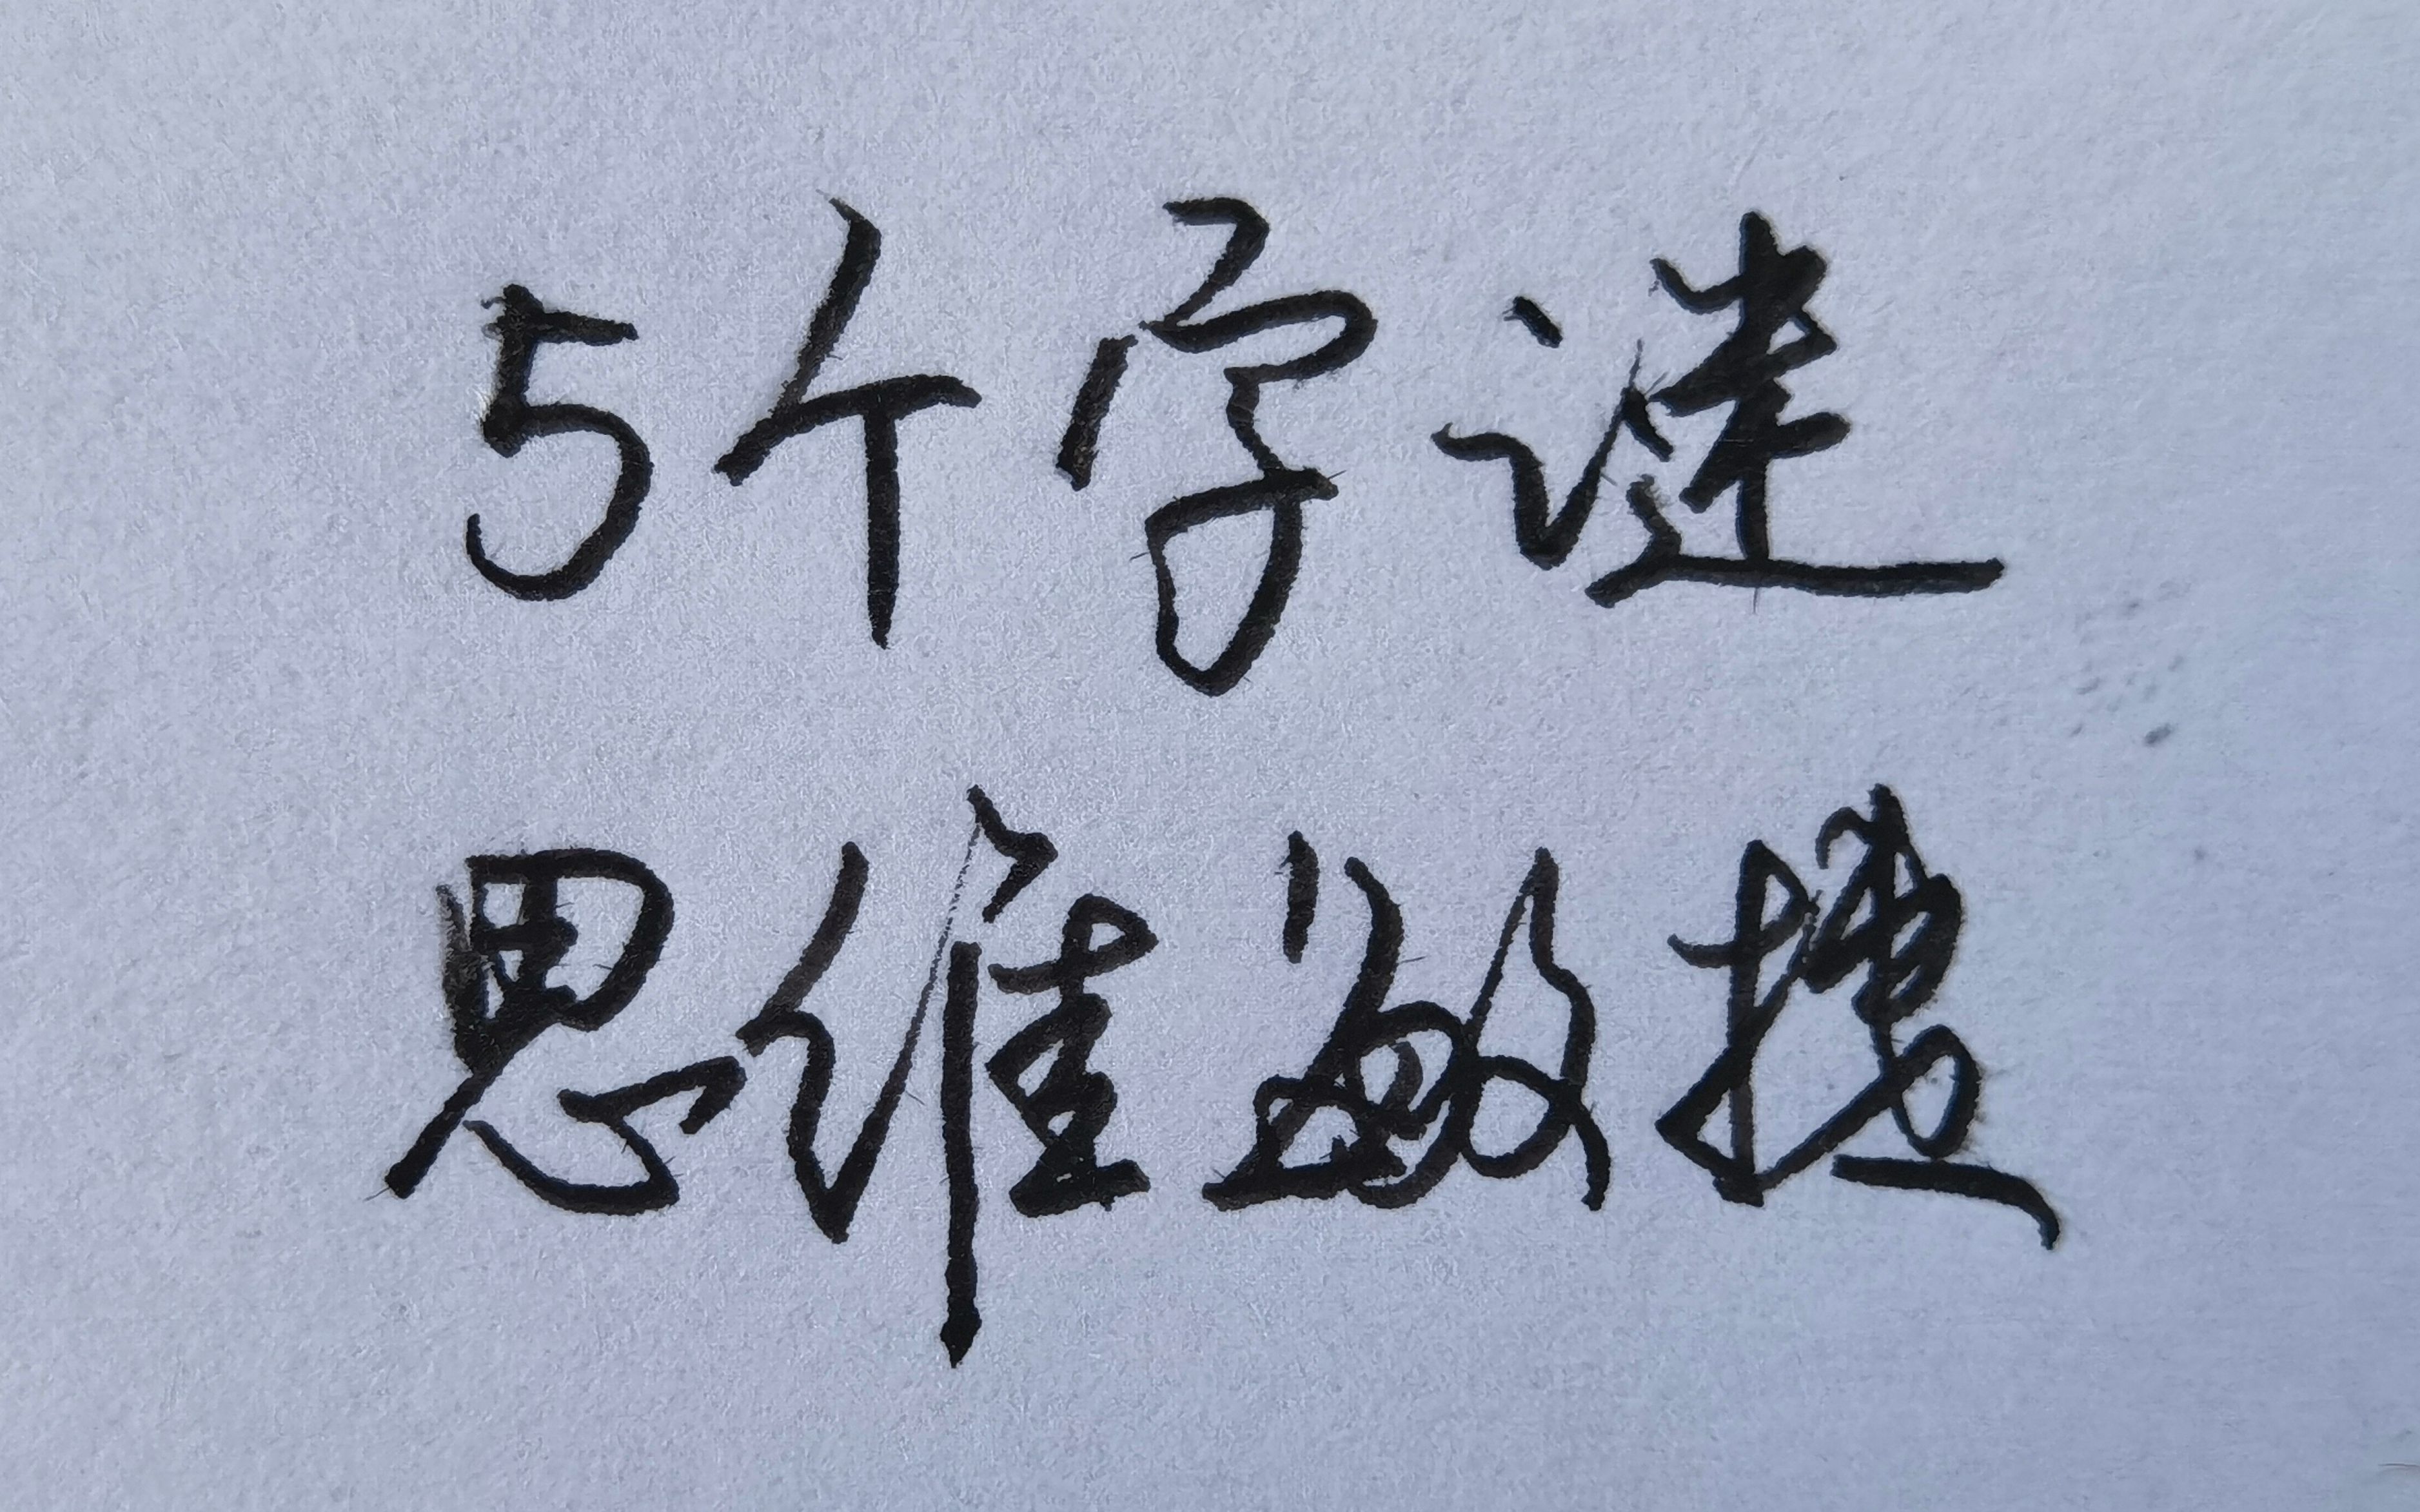 5个字谜
思维敏捷